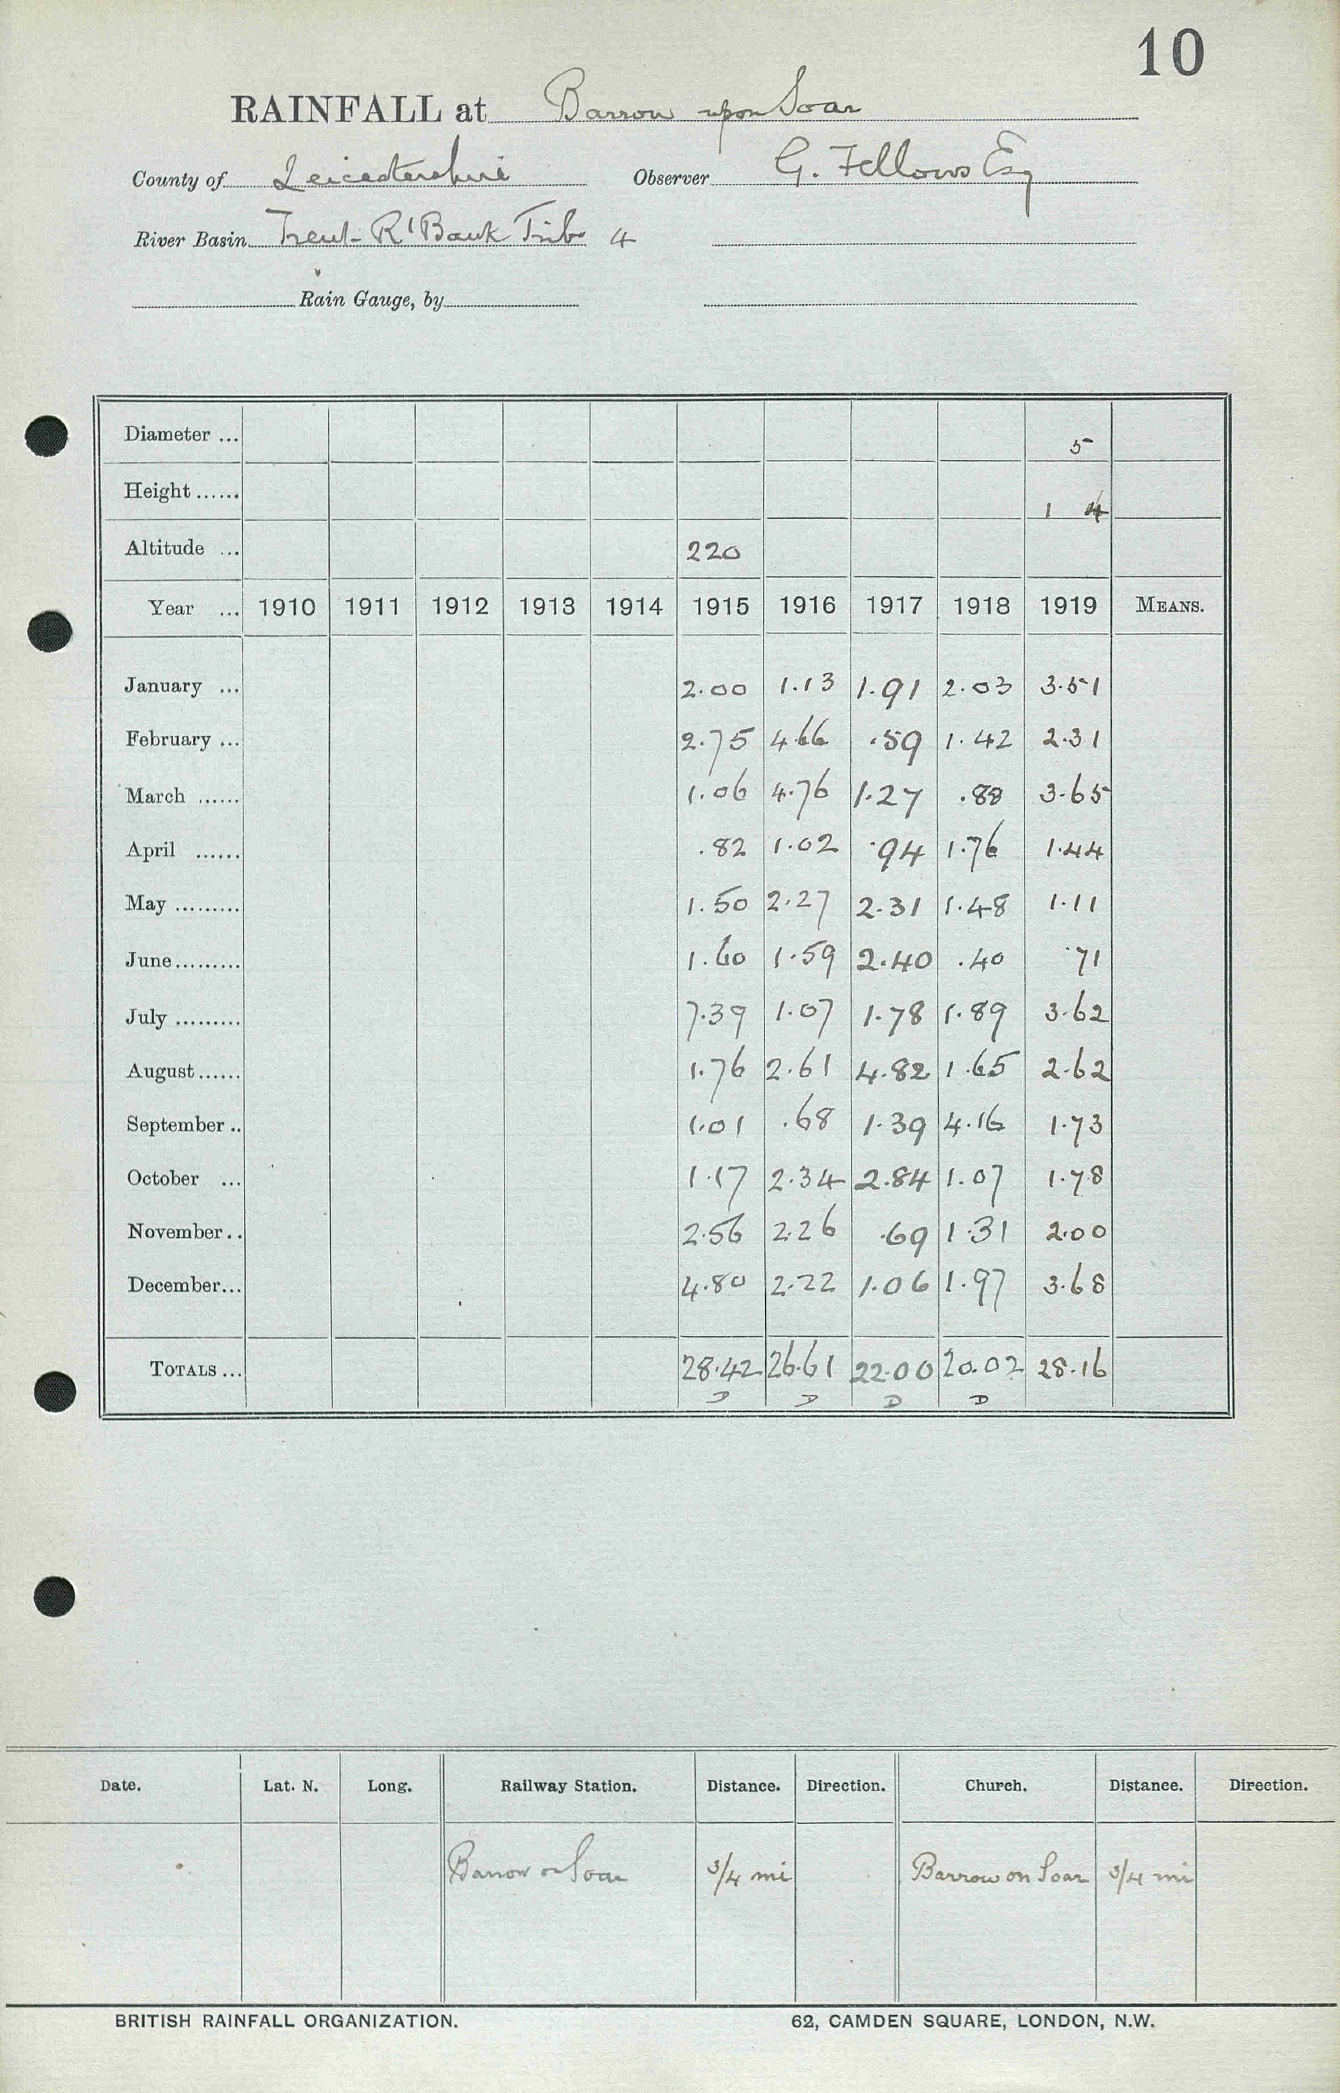 10
RAINFALL at Barrow upon Soar
County of Leicestershire Observer G. Fellows Esq
River Basin Trent R' Bank Trib 4
Rain Gauge, by
Diameter ... 5
Height ...... 1 4
Altitude ... 220
Year ... 1910 1911 1912 1913 1914 1915 1916 1917 1918 1919 MEANS.
January ... 2.00 1.13 1.91 2.03 3.51
February ... 2.75 4.66 .59 1.42 2.31
March ...... 1.06 4.76 1.27 .88 3.65
April ...... .82 1.02 .94 1.76 1.44
May ......... 1.50 2.27 2.31 1.48 1.11
June ......... 1.60 1.59 2.40 .40 .71
July ......... 7.39 1.07 1.78 1.89 3.62
August ...... 1.76 2.61 4.82 1.65 2.62
September .. 1.01 .68 1.39 4.16 1.73
October ... 1.17 2.34 2.84 1.07 1.78
November .. 2.56 2.26 .69 1.31 2.00
December ... 4.80 2.22 1.06 1.97 3.68
TOTALS ... 28.42 26.61 22.00 20.02 28.16
D D D D
Date. Lat. N. Long. Railway Station. Distance. Direction. Church. Distance. Direction.
Barrow on Soar 3/4 mi Barrow on Soar 3/4 mi
BRITISH RAINFALL ORGANIZATION. 62, CAMDEN SQUARE, LONDON, N.W.